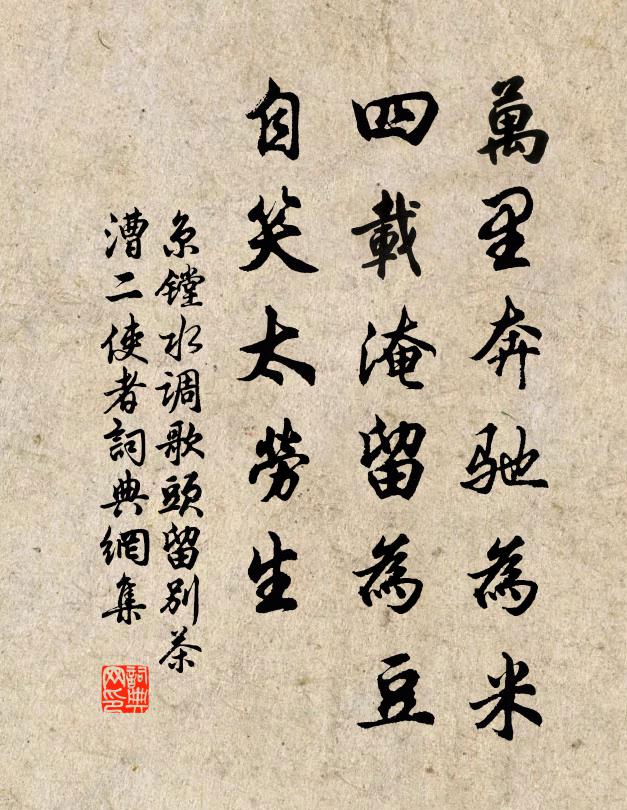 萬里奔馳為米
四載淹留為豆
自笑太勞生
京镗水调歌頭留别茶
漕二使者詞典網集
詞典网印